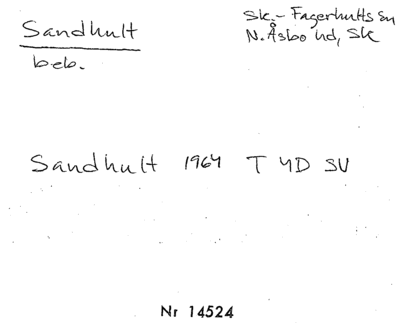 Sandhult
Sk.- Fagerhults sn
beb.
N. Åsbo hd, Sk
Sandhult 1964 T 4D SV
Nr 14524